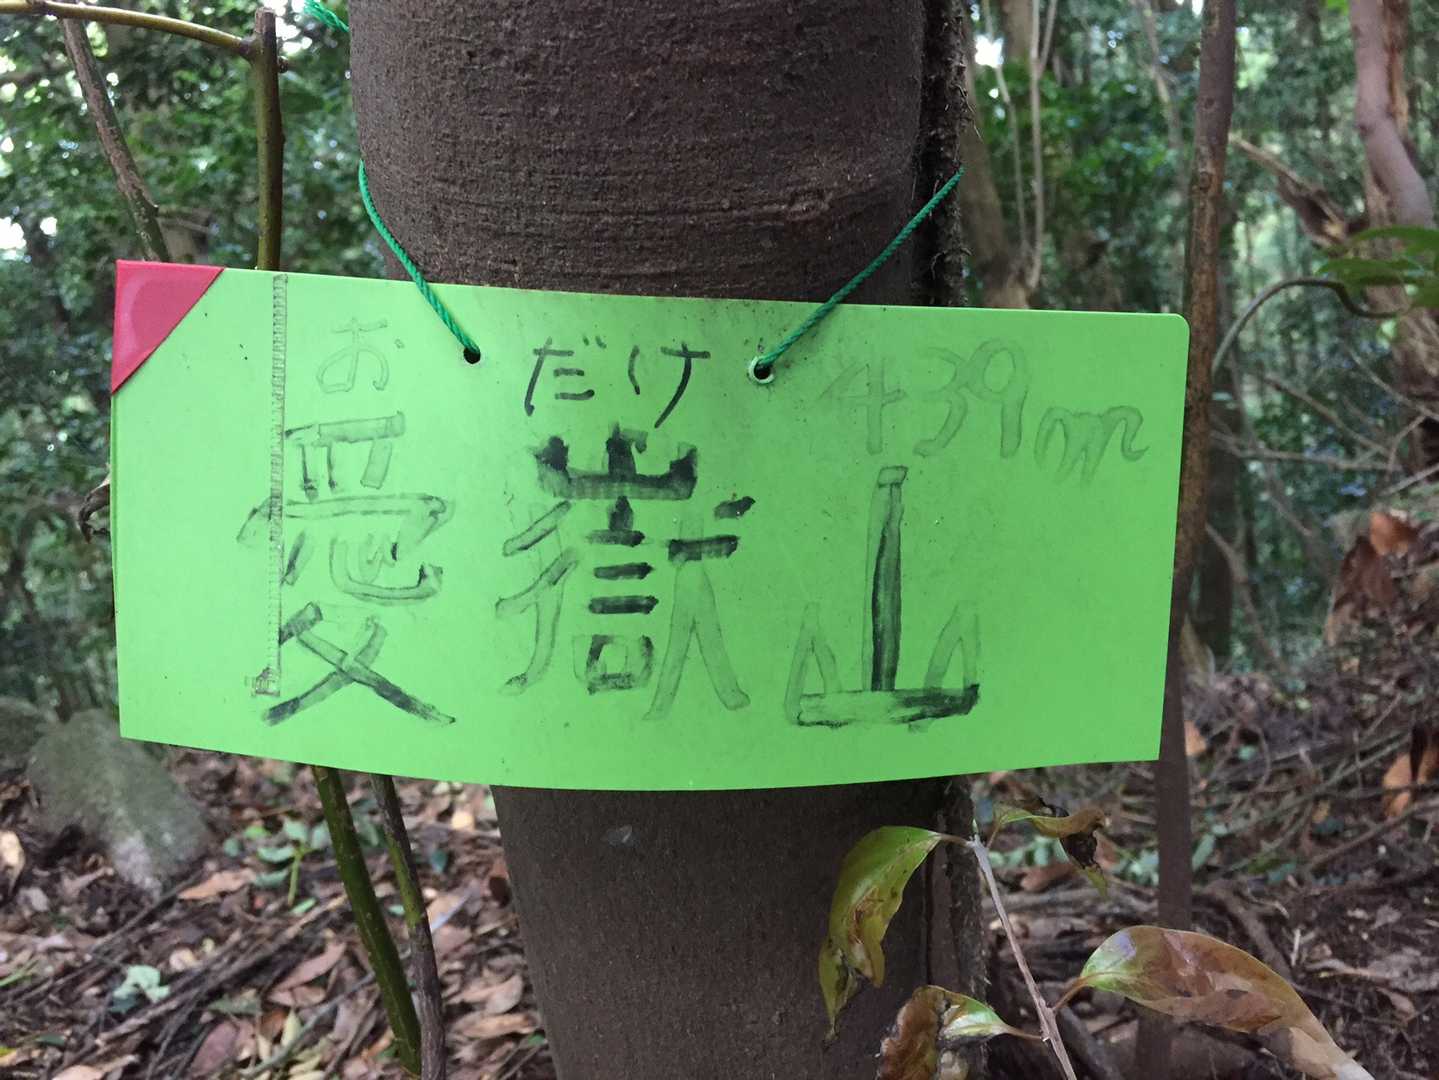 お だけ 439m
愛嶽山